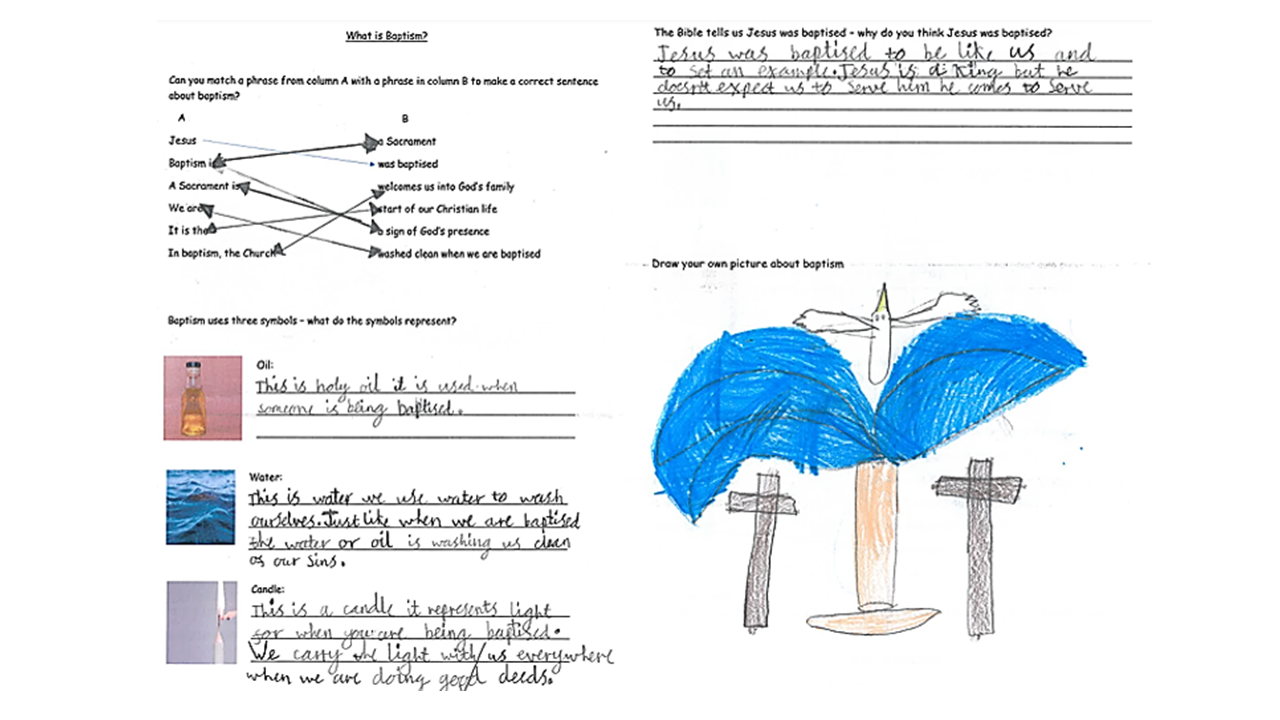 What is Baptism?
Can you match a phrase from column A with a phrase in column B to make a correct sentence
about baptism?
A B
Jesus a Sacrament
Baptism is was baptised
A Sacrament is welcomes us into God's family
We are start of our Christian life
It is the a sign of God's presence
In baptism, the Church washed clean when we are baptised
Baptism uses three symbols – what do the symbols represent?
Oil:
This is holy oil it is used when
someone is being baptised.
Water:
This is water we use water to wash
ourselves. Just like when we are baptised
the water or oil is washing us clean
of our sins.
Candle:
This is a candle it represents light
for when you are being baptised.
We carry the light with us everywhere
when we are doing good deeds.
The Bible tells us Jesus was baptised – why do you think Jesus was baptised?
Jesus was baptised to be like us and
to set an example. Jesus is a King but he
doesn't expect us to serve him he comes to serve
us.
Draw your own picture about baptism